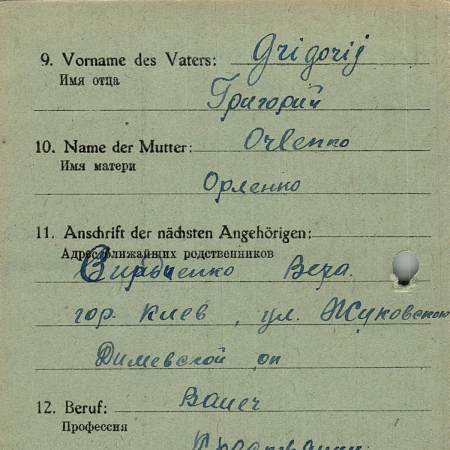 9. Vorname des Vaters: Grigorij
Имя отца
Григорий
10. Name der Mutter: Orlenko
Имя матери
Орленко
11. Anschrift der nächsten Angehörigen:
Адрес ближайших родственников
Вера.
гор. Киев, ул. Жуковского
оп
12. Beruf: Bauer
Профессия